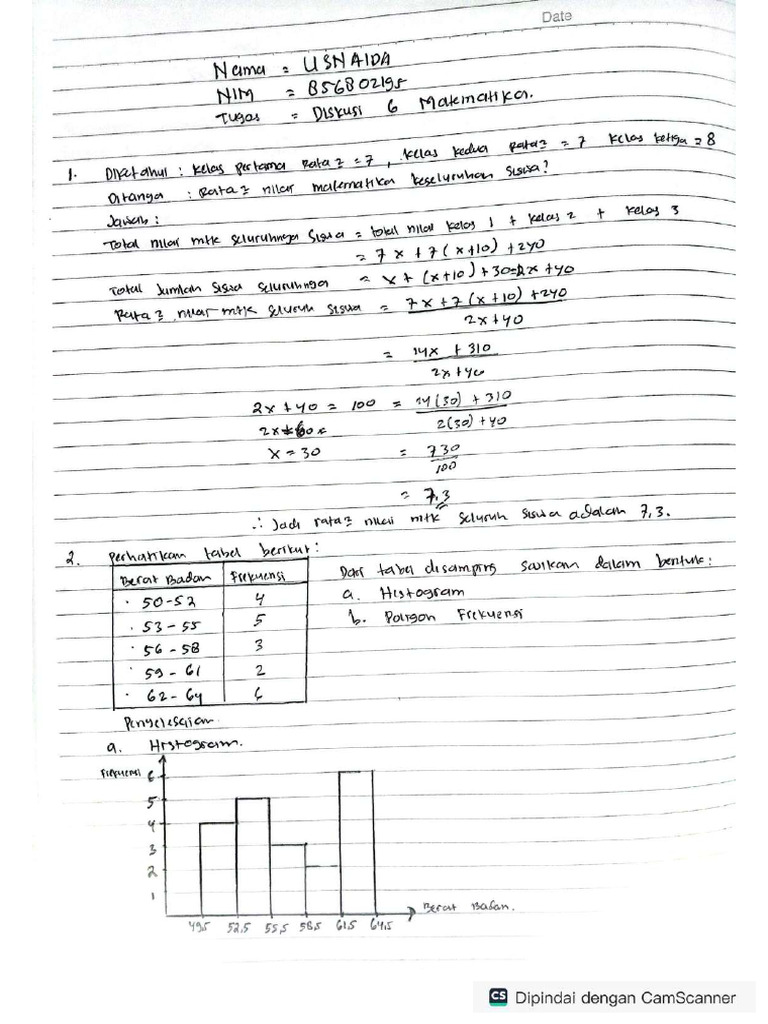 Date
Nama = USNAIDA
NIM = 856802195
Tugas = Diskusi 6 Matematika.
1. Diketahui : Kelas pertama Rata2 = 7, Kelas kedua Rata2 = 7 Kelas ketiga = 8
Ditanya : Rata2 nilai matematika keseluruhan siswa?
Jawab :
Total nilai mtk seluruhnya siswa = total nilai kelas 1 + kelas 2 + kelas 3
= 7x + 7(x+10) + 240
Total Jumlah siswa seluruhnya = x + (x+10) + 30 = 2x + 40
Rata2 nilai mtk seluruh siswa = 7x + 7(x+10) + 240
2x + 40
= 14x + 310
2x + 40
2x + 40 = 100 = 14(30) + 310
2(30) + 40
2x = 60
x = 30 = 730
100
= 7,3
∴ Jadi rata2 nilai mtk seluruh siswa adalah 7,3.
2. Perhatikan tabel berikut :
Berat Badan Frekuensi
50 - 52 4
53 - 55 5
56 - 58 3
59 - 61 2
62 - 64 6
Dari tabel disamping sajikan dalam bentuk :
a. Histogram
b. Poligon Frekuensi
Penyelesaian
a. Histogram.
Frekuensi 6
5
4
3
2
1
49,5 52,5 55,5 58,5 61,5 64,5
Berat Badan.
CS Dipindai dengan CamScanner